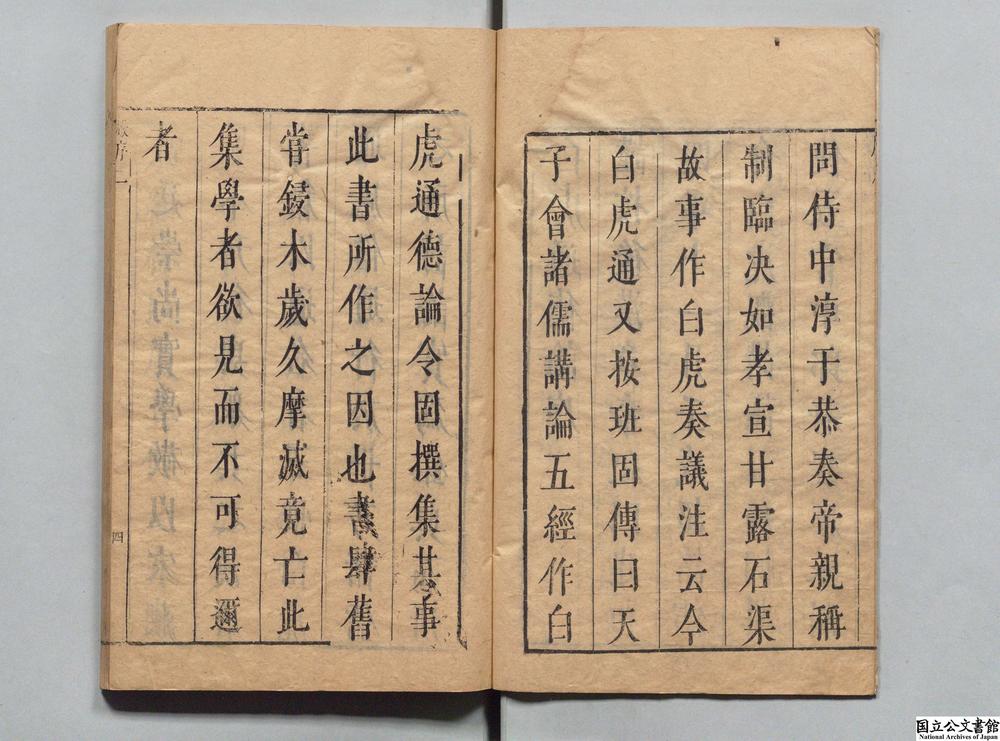 問侍中淳于恭奏帝親稱
制臨决如孝宣甘露石渠
故事作白虎奏議注云今
白虎通又按班固傳曰天
子會諸儒講論五經作白
虎通德論令固撰集其事
此書所作之因也書肆舊
嘗鋟木歲久摩滅竟亡此
集學者欲見而不可得邇
者
四
国立公文書館
National Archives of Japan